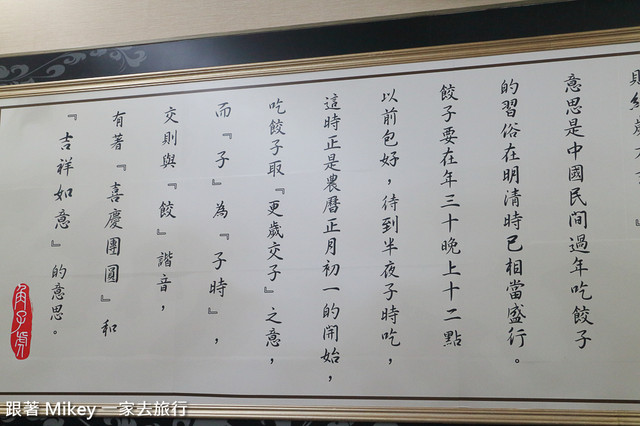 意思是中國民間過年吃餃子
的習俗在明清時已相當盛行。
餃子要在年三十晚上十二點
以前包好，待到半夜子時吃，
這時正是農曆正月初一的開始，
吃餃子取『更歲交子』之意，
而『子』為『子時』，
交則與『餃』諧音，
有著『喜慶團圓』和
『吉祥如意』的意思。
跟著 Mikey 一家去旅行